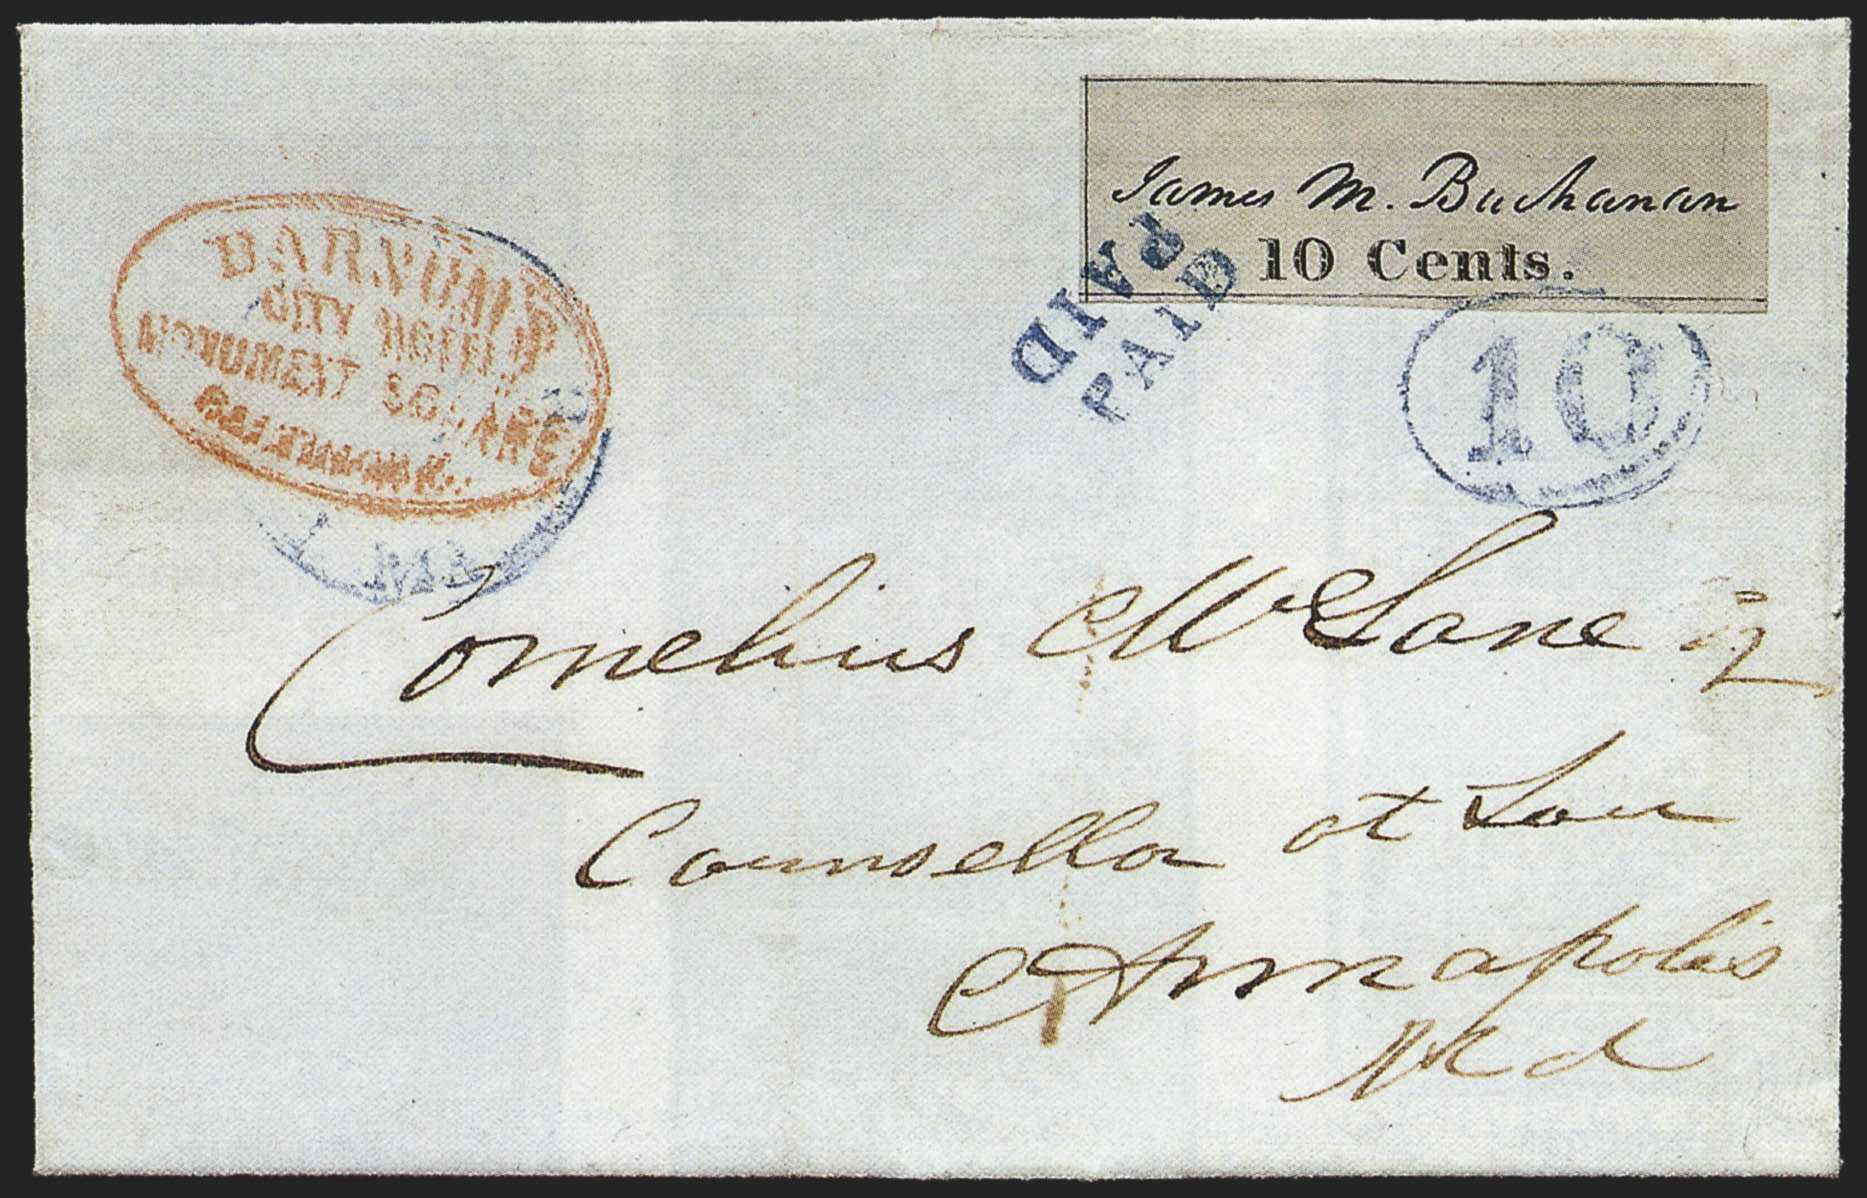 James M. Buchanan
10 Cents.
PAID
PAID
10
BARNUM'S
CITY HOTEL
MONUMENT SQUARE
BALTIMORE.
Cornelius McLane
Counsellor at Law
Annapolis
Md